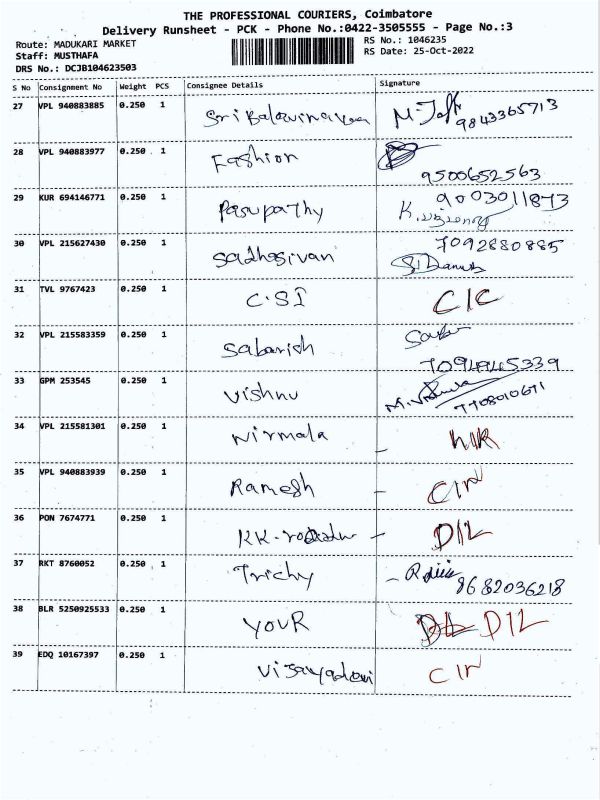 THE PROFESSIONAL COURIERS, Coimbatore
Delivery Runsheet - PCK - Phone No.:0422-3505555 - Page No.:3
Route: MADUKARI MARKET RS No.: 1046235
Staff: MUSTHAFA RS Date: 25-Oct-2022
DRS No.: DCJB104623503
S No Consignment No Weight PCS Consignee Details Signature
27 VPL 940883885 0.250 1 9843365713
28 VPL 940883977 0.250 1 Fashion 9500652563
29 KUR 694146771 0.250 1 Pasupathy 9003011873
30 VPL 215627430 0.250 1 Sadhasivan 7092880885
31 TVL 9767423 0.250 1 C.S.I
32 VPL 215583359 0.250 1 Sabarish 7094945339
33 GPM 253545 0.250 1 Vishnu 7708010671
34 VPL 215581301 0.250 1 Nirmala
35 VPL 940883939 0.250 1 Ramesh
36 PON 7674771 0.250 1 D/L
37 RKT 8760052 0.250 1 Trichy 8682036218
38 BLR 5250925533 0.250 1 YOUR D/L
39 EDQ 10167397 0.250 1 Vijayadevi